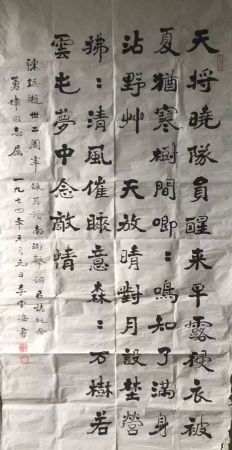 天将曉隊員醒来早露侵衣被
夏猶寒樹間唧：鳴知了滿身
沾野艸 天放晴對月設埜營
拂：清風催睡意森：万樹若
雲屯夢中念敵情
陳毅逝世二周年錄其贛南游擊詞以誌紀念
同志屬 一九七四年元月元日李雲海書